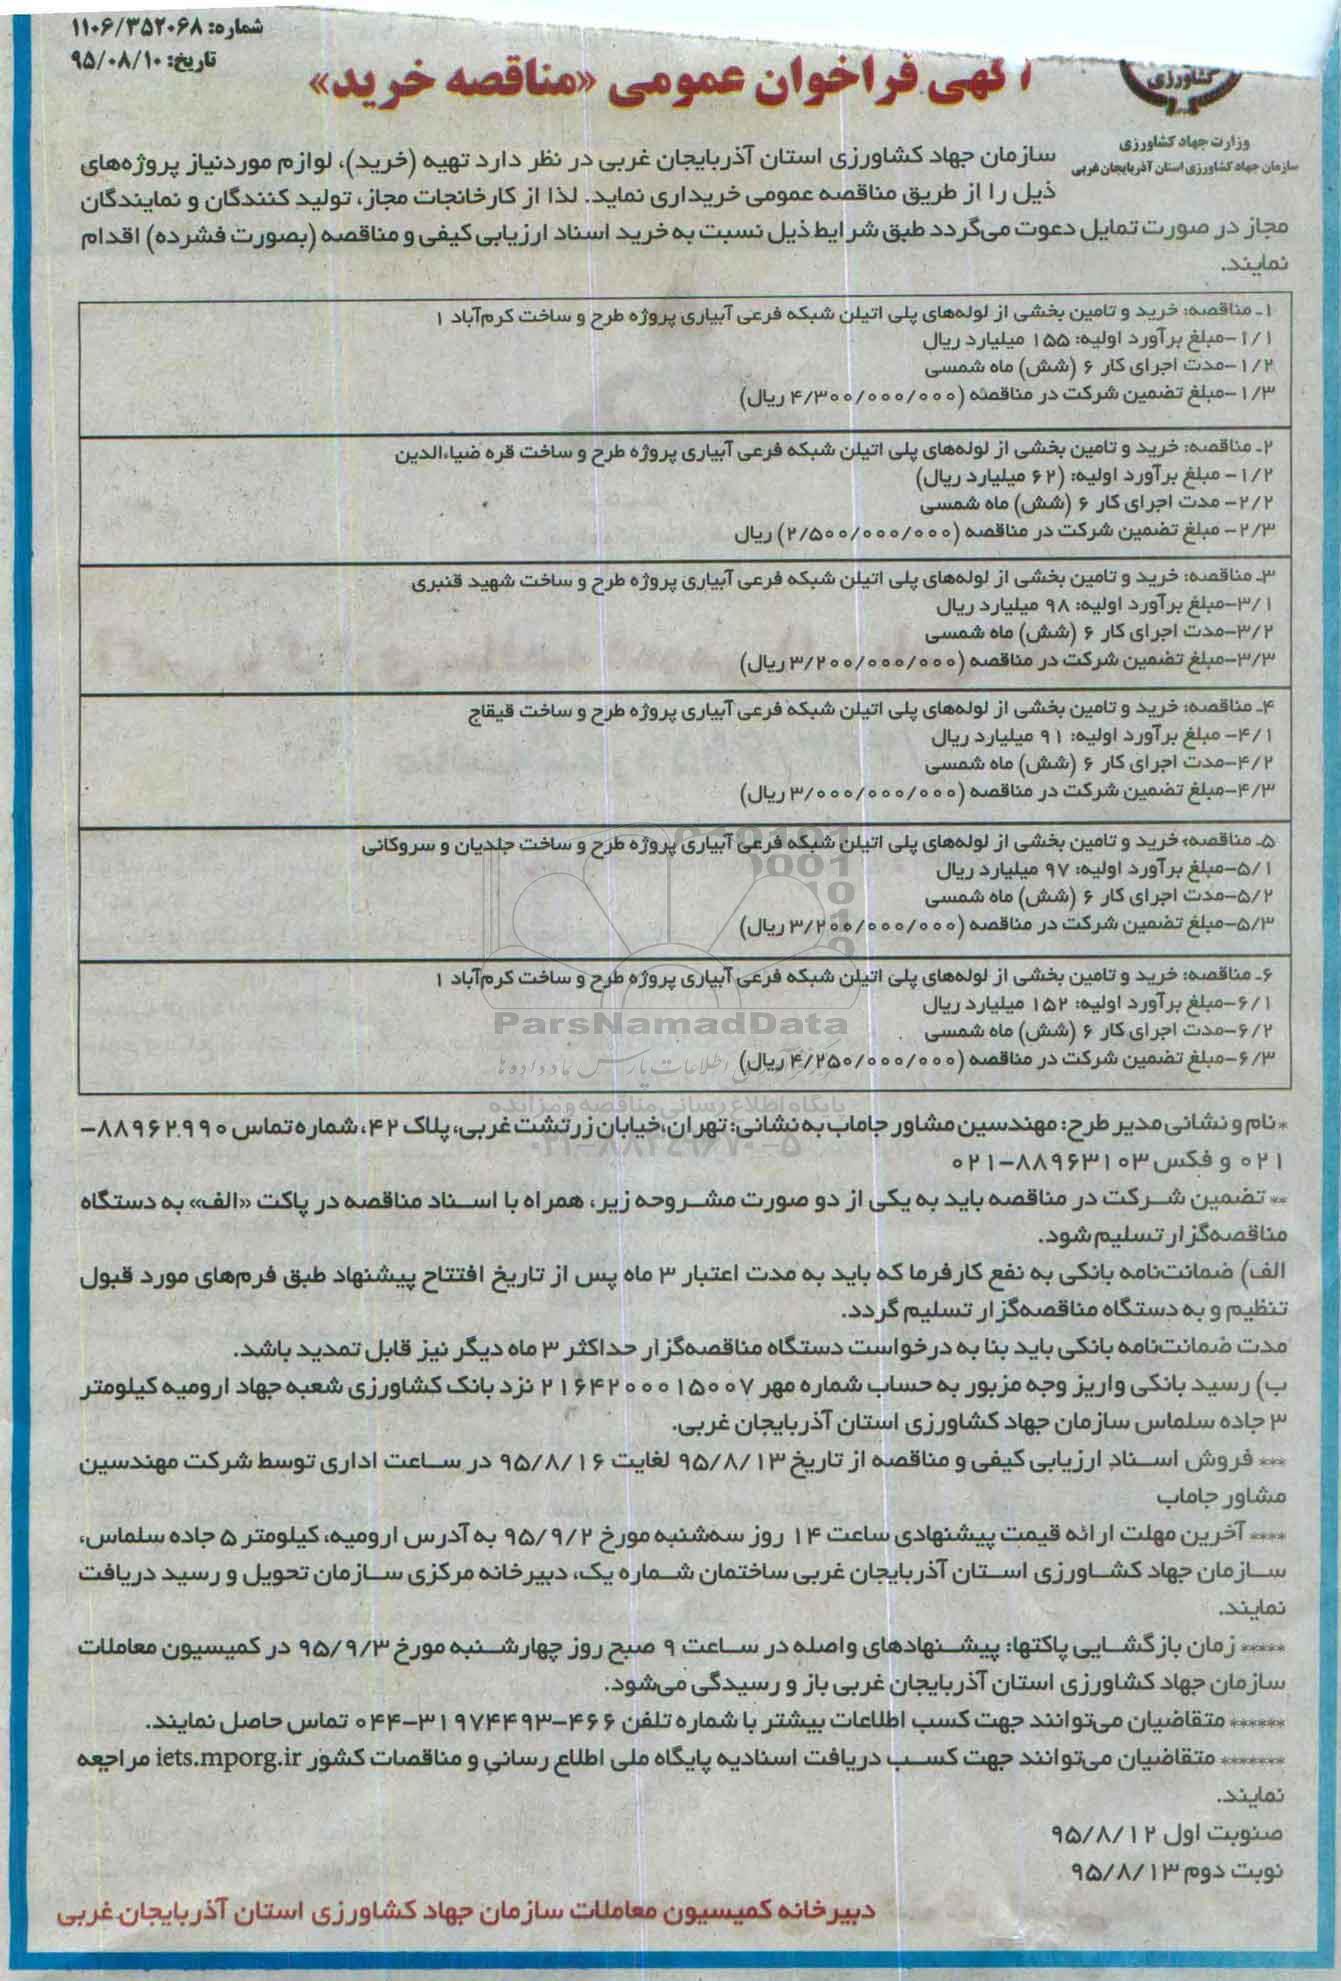 شماره: ۱۱۰۶/۳۵۲۰۶۸
تاریخ: ۹۵/۰۸/۱۰
آگهی فراخوان عمومی «مناقصه خرید»
کشاورزی
وزارت جهاد کشاورزی
سازمان جهاد کشاورزی استان آذربایجان غربی
سازمان جهاد کشاورزی استان آذربایجان غربی در نظر دارد تهیه (خرید)، لوازم موردنیاز پروژه‌های
ذیل را از طریق مناقصه عمومی خریداری نماید. لذا از کارخانجات مجاز، تولید کنندگان و نمایندگان
مجاز در صورت تمایل دعوت می‌گردد طبق شرایط ذیل نسبت به خرید اسناد ارزیابی کیفی و مناقصه (بصورت فشرده) اقدام
نمایند.
۱ـ مناقصه: خرید و تامین بخشی از لوله‌های پلی اتیلن شبکه فرعی آبیاری پروژه طرح و ساخت کرم‌آباد ۱
۱/۱-مبلغ برآورد اولیه: ۱۵۵ میلیارد ریال
۱/۲-مدت اجرای کار ۶ (شش) ماه شمسی
۱/۳-مبلغ تضمین شرکت در مناقصه (۴/۳۰۰/۰۰۰/۰۰۰ ریال)
۲ـ مناقصه: خرید و تامین بخشی از لوله‌های پلی اتیلن شبکه فرعی آبیاری پروژه طرح و ساخت قره ضیاءالدین
۱/۲- مبلغ برآورد اولیه: (۶۲ میلیارد ریال)
۲/۲- مدت اجرای کار ۶ (شش) ماه شمسی
۲/۳- مبلغ تضمین شرکت در مناقصه (۲/۵۰۰/۰۰۰/۰۰۰) ریال
۳ـ مناقصه: خرید و تامین بخشی از لوله‌های پلی اتیلن شبکه فرعی آبیاری پروژه طرح و ساخت شهید قنبری
۳/۱-مبلغ برآورد اولیه: ۹۸ میلیارد ریال
۳/۲-مدت اجرای کار ۶ (شش) ماه شمسی
۳/۳-مبلغ تضمین شرکت در مناقصه (۳/۲۰۰/۰۰۰/۰۰۰ ریال)
۴ـ مناقصه: خرید و تامین بخشی از لوله‌های پلی اتیلن شبکه فرعی آبیاری پروژه طرح و ساخت قیقاج
۴/۱- مبلغ برآورد اولیه: ۹۱ میلیارد ریال
۴/۲-مدت اجرای کار ۶ (شش) ماه شمسی
۴/۳-مبلغ تضمین شرکت در مناقصه (۳/۰۰۰/۰۰۰/۰۰۰ ریال)
۵ـ مناقصه: خرید و تامین بخشی از لوله‌های پلی اتیلن شبکه فرعی آبیاری پروژه طرح و ساخت جلدیان و سروکانی
۵/۱-مبلغ برآورد اولیه: ۹۷ میلیارد ریال
۵/۲-مدت اجرای کار ۶ (شش) ماه شمسی
۵/۳-مبلغ تضمین شرکت در مناقصه (۳/۲۰۰/۰۰۰/۰۰۰ ریال)
۶ـ مناقصه: خرید و تامین بخشی از لوله‌های پلی اتیلن شبکه فرعی آبیاری پروژه طرح و ساخت کرم‌آباد ۱
۶/۱-مبلغ برآورد اولیه: ۱۵۲ میلیارد ریال
۶/۲-مدت اجرای کار ۶ (شش) ماه شمسی
۶/۳-مبلغ تضمین شرکت در مناقصه (۴/۲۵۰/۰۰۰/۰۰۰ ریال)
ParsNamadData
پایگاه اطلاع رسانی مناقصه و مزایده
۰۲۱-۸۸۳۴۹۶۷۰-۵
*نام و نشانی مدیر طرح: مهندسین مشاور جاماب به نشانی: تهران، خیابان زرتشت غربی، پلاک ۴۲، شماره تماس ۸۸۹۶۲۹۹۰-
۰۲۱ و فکس ۸۸۹۶۳۱۰۳-۰۲۱
** تضمین شرکت در مناقصه باید به یکی از دو صورت مشروحه زیر، همراه با اسناد مناقصه در پاکت «الف» به دستگاه
مناقصه‌گزار تسلیم شود.
الف) ضمانت‌نامه بانکی به نفع کارفرما که باید به مدت اعتبار ۳ ماه پس از تاریخ افتتاح پیشنهاد طبق فرم‌های مورد قبول
تنظیم و به دستگاه مناقصه‌گزار تسلیم گردد.
مدت ضمانت‌نامه بانکی باید بنا به درخواست دستگاه مناقصه‌گزار حداکثر ۳ ماه دیگر نیز قابل تمدید باشد.
ب) رسید بانکی واریز وجه مزبور به حساب شماره مهر ۲۱۶۴۲۰۰۰۱۵۰۰۷ نزد بانک کشاورزی شعبه جهاد ارومیه کیلومتر
۳ جاده سلماس سازمان جهاد کشاورزی استان آذربایجان غربی.
*** فروش اسناد ارزیابی کیفی و مناقصه از تاریخ ۹۵/۸/۱۳ لغایت ۹۵/۸/۱۶ در ساعت اداری توسط شرکت مهندسین
مشاور جاماب
**** آخرین مهلت ارائه قیمت پیشنهادی ساعت ۱۴ روز سه‌شنبه مورخ ۹۵/۹/۲ به آدرس ارومیه، کیلومتر ۵ جاده سلماس،
سازمان جهاد کشاورزی استان آذربایجان غربی ساختمان شماره یک، دبیرخانه مرکزی سازمان تحویل و رسید دریافت
نمایند.
***** زمان بازگشایی پاکتها: پیشنهادهای واصله در ساعت ۹ صبح روز چهارشنبه مورخ ۹۵/۹/۳ در کمیسیون معاملات
سازمان جهاد کشاورزی استان آذربایجان غربی باز و رسیدگی می‌شود.
****** متقاضیان می‌توانند جهت کسب اطلاعات بیشتر با شماره تلفن ۴۶۶-۳۱۹۷۴۴۹۳-۰۴۴ تماس حاصل نمایند.
******* متقاضیان می‌توانند جهت کسب دریافت اسنادبه پایگاه ملی اطلاع رسانی و مناقصات کشور iets.mporg.ir مراجعه
نمایند.
صنوبت اول ۹۵/۸/۱۲
نوبت دوم ۹۵/۸/۱۳
دبیرخانه کمیسیون معاملات سازمان جهاد کشاورزی استان آذربایجان غربی